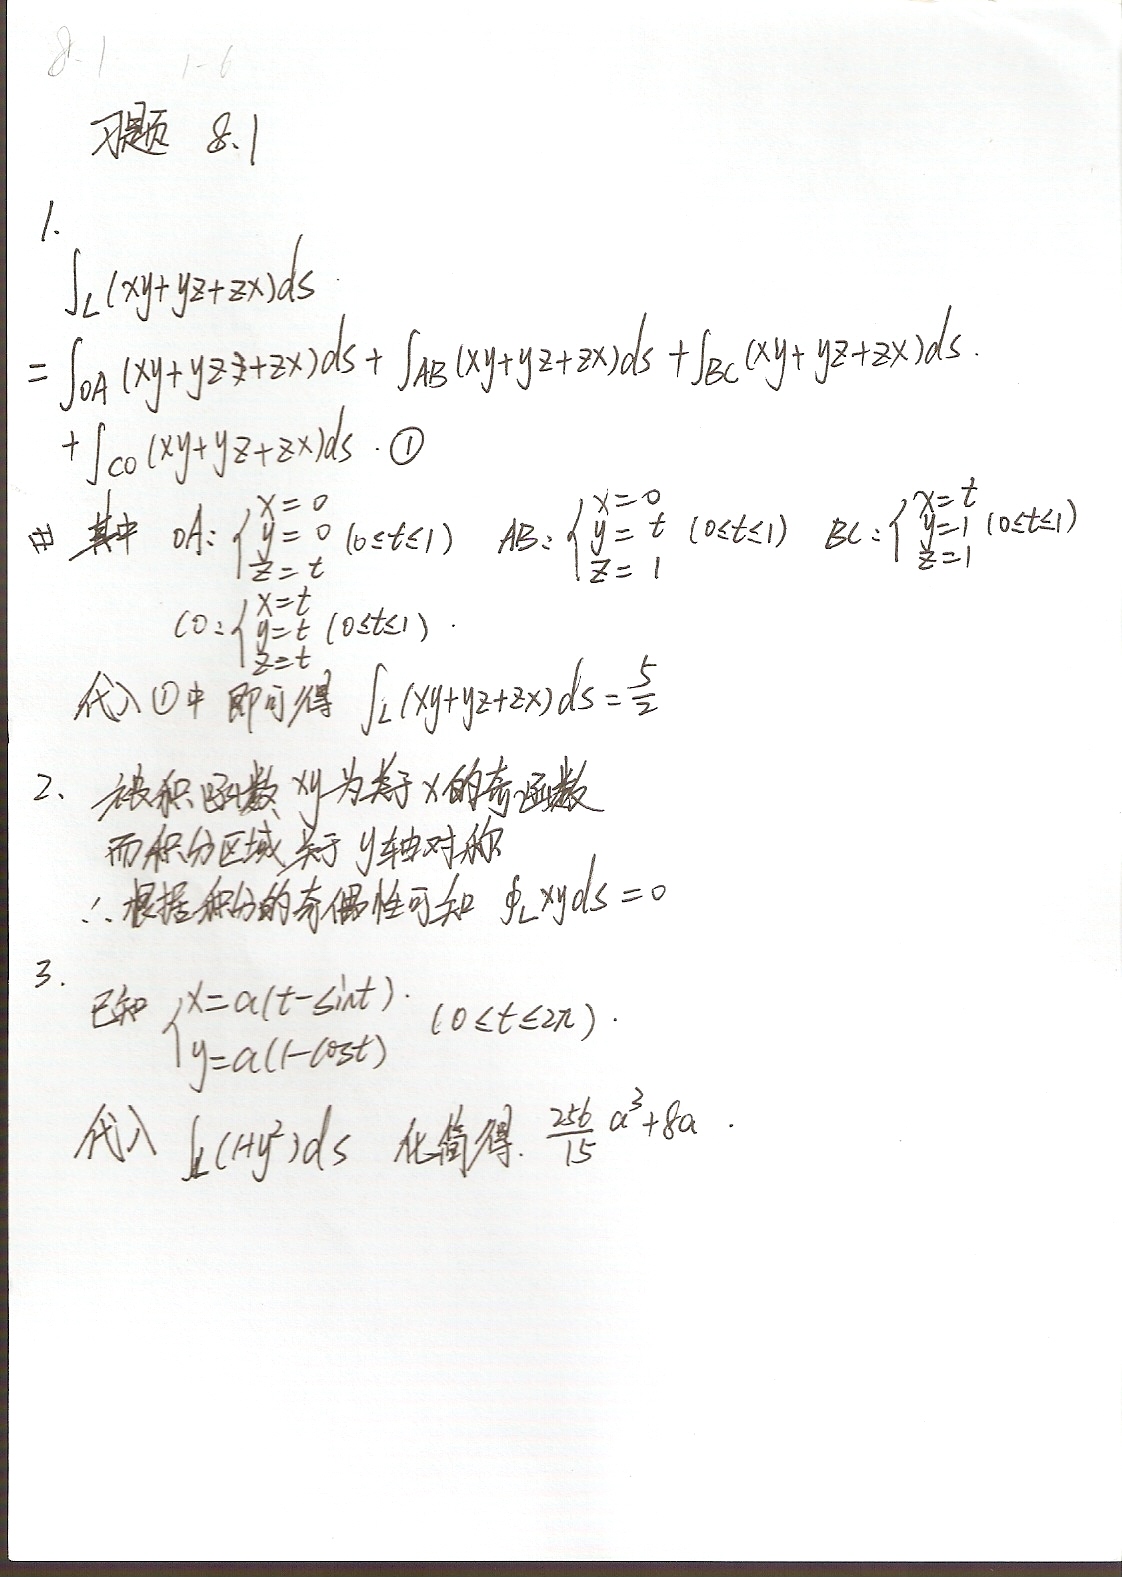 8.1 1-6
习题 8.1
1.
∫L(xy+yz+zx)ds.
=∫OA(xy+yz+zx)ds+∫AB(xy+yz+zx)ds+∫BC(xy+yz+zx)ds.
+∫CO(xy+yz+zx)ds.①
其中 OA:{x=0 y=0 z=t (0≤t≤1) AB:{x=0 y=t z=1 (0≤t≤1) BC:{x=t y=1 z=1 (0≤t≤1)
CO:{x=t y=t z=t (0≤t≤1).
代入①中即可得 ∫L(xy+yz+zx)ds=5/2
2、被积函数xy为关于x的奇函数
而积分区域关于y轴对称
∴根据积分的奇偶性可知 ∮Lxyds=0
3.
已知 {x=a(t-sint). y=a(1-cost) (0≤t≤2π).
代入 ∫L(1+y²)ds 化简得. 256/15 a³+8a.